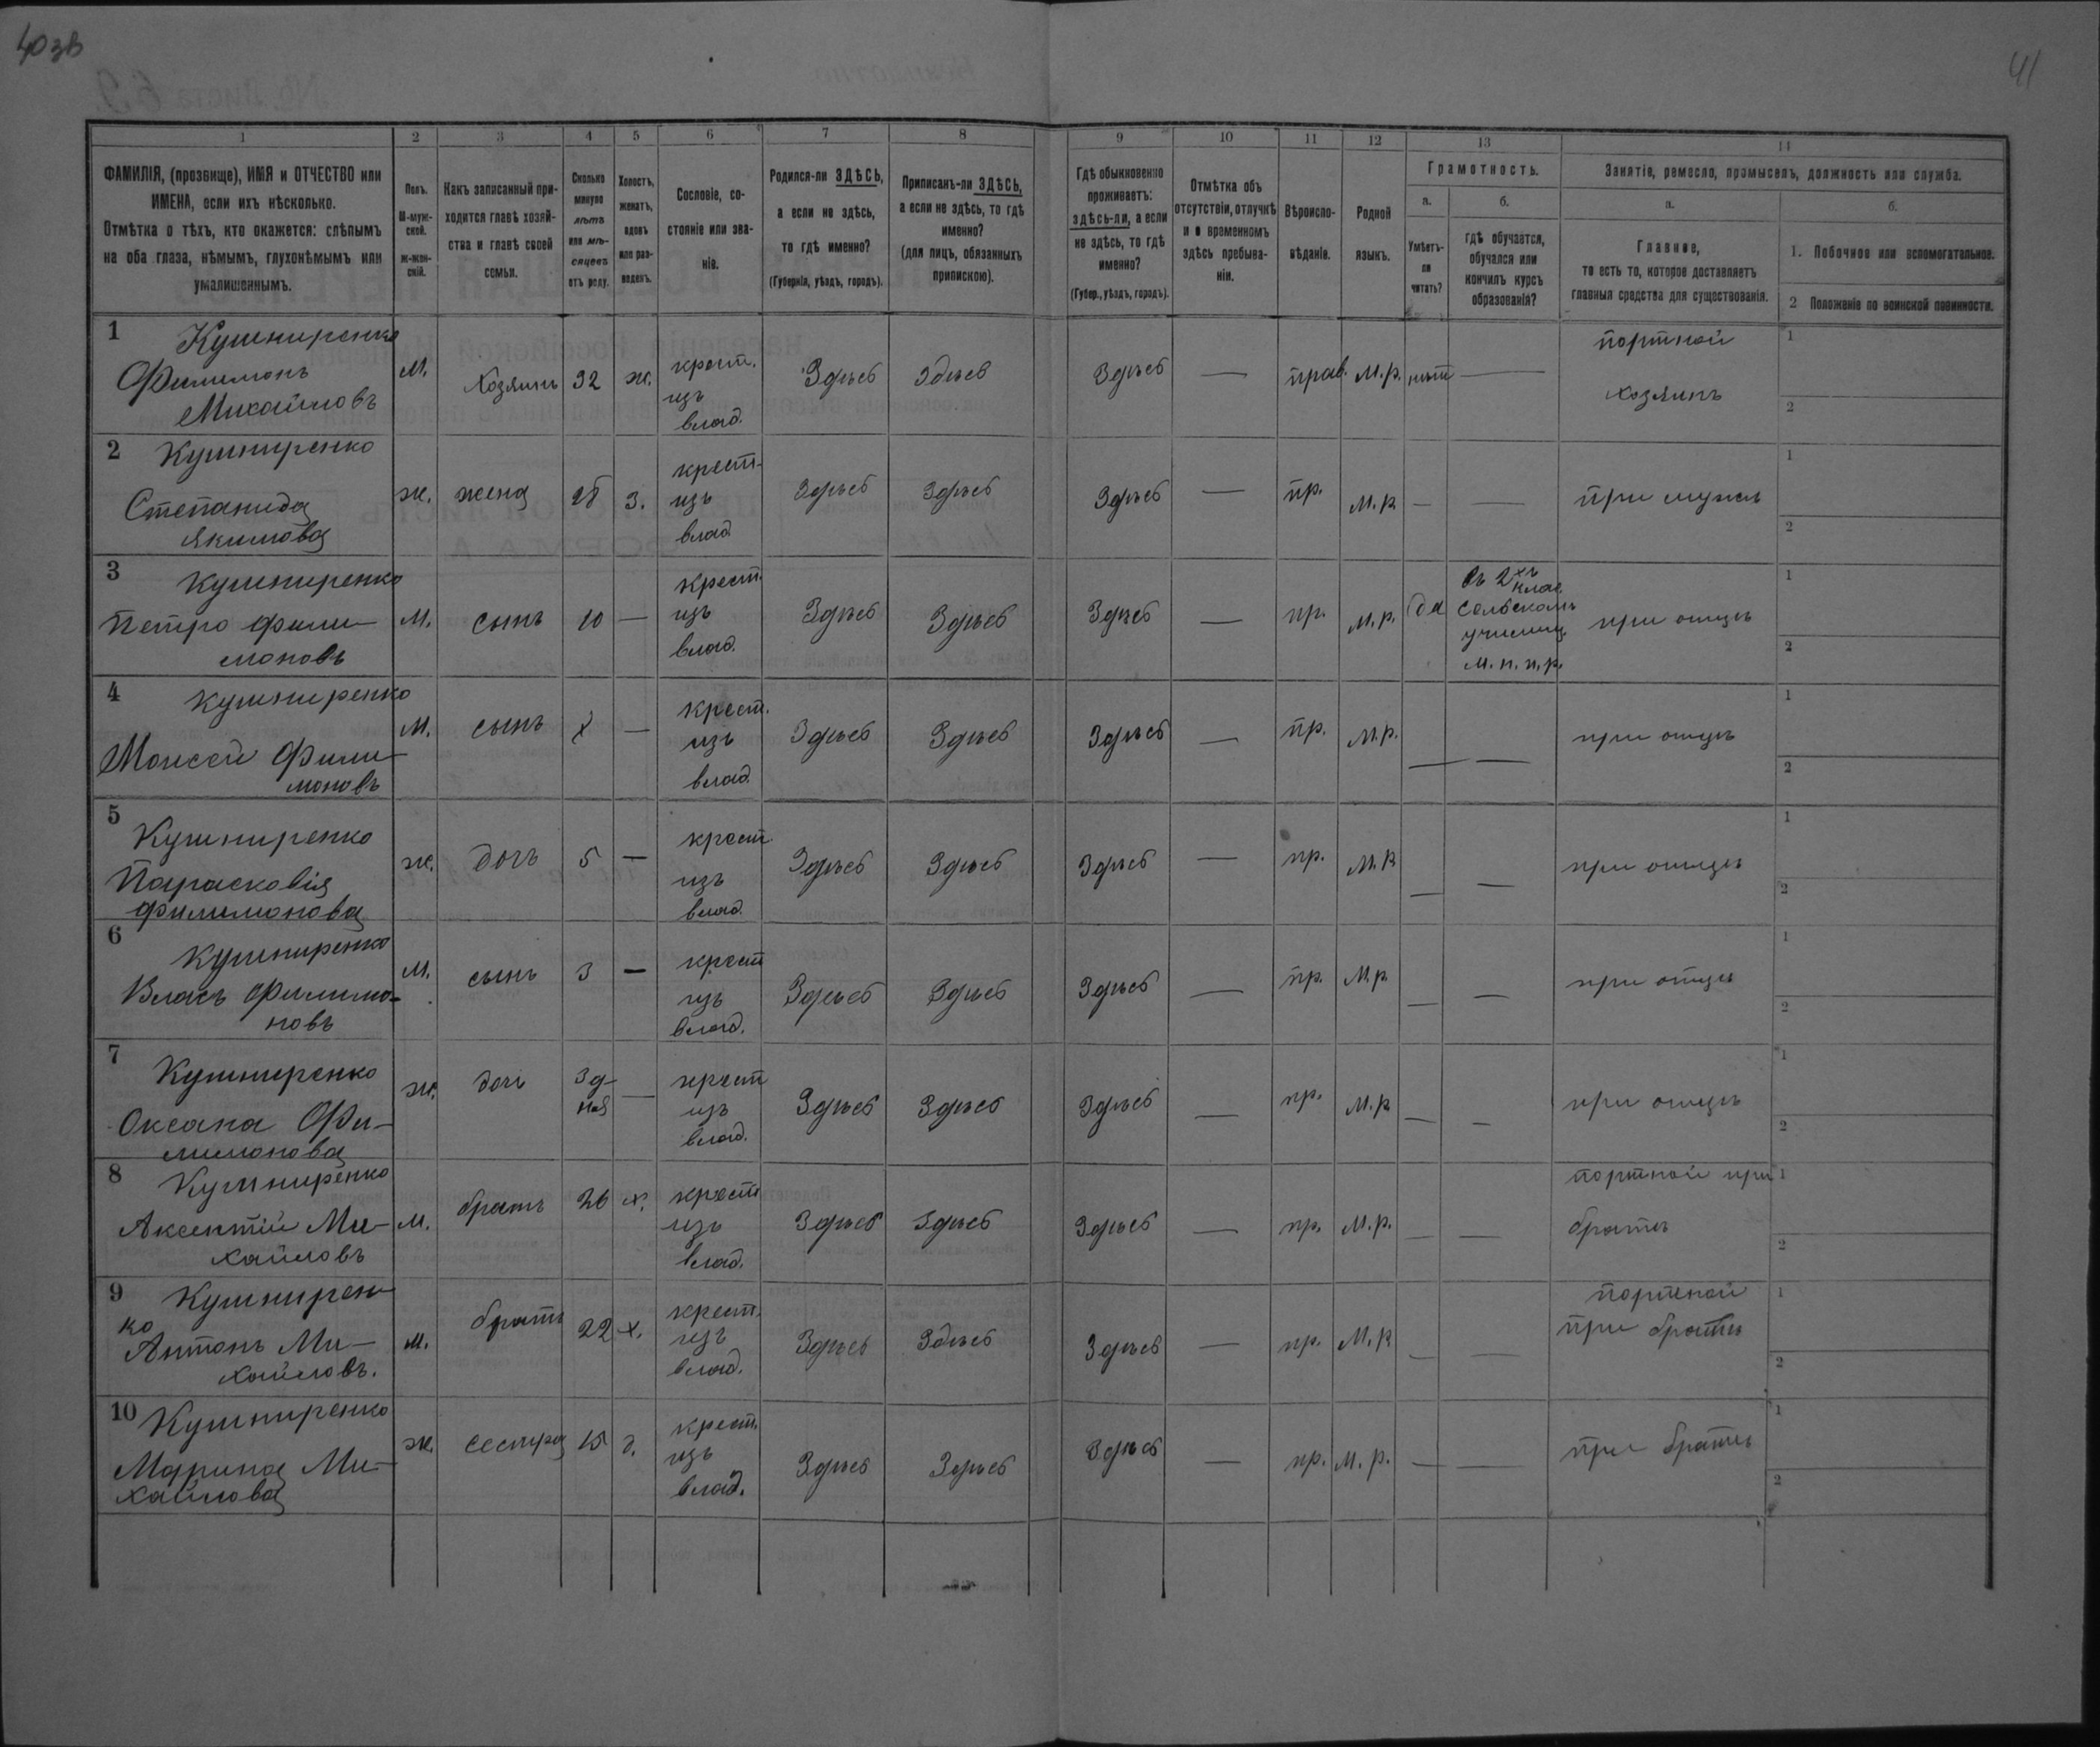 40зв
41
1 2 3 4 5 6 7 8 9 10 11 12 13 14
ФАМИЛІЯ, (прозвище), ИМЯ и ОТЧЕСТВО или
ИМЕНА, если ихъ нѣсколько.
Отмѣтка о тѣхъ, кто окажется: слѣпымъ
на оба глаза, нѣмымъ, глухонѣмымъ или
умалишеннымъ.
Полъ.
М-муж-
ской.
ж-жен-
скій.
Какъ записанный при-
ходится главѣ хозяй-
ства и главѣ своей
семьи.
Сколько
минуло
лѣтъ
или мѣ-
сяцевъ
отъ роду.
Холостъ,
женатъ,
вдовъ
или раз-
веденъ.
Сословіе, со-
стояніе или зва-
ніе.
Родился-ли ЗДѢСЬ,
а если не здѣсь,
то гдѣ именно?
(Губернія, уѣздъ, городъ).
Приписанъ-ли ЗДѢСЬ,
а если не здѣсь, то гдѣ
именно?
(для лицъ, обязанныхъ
припискою).
Гдѣ обыкновенно
проживаетъ:
здѣсь-ли, а если
не здѣсь, то гдѣ
именно?
(Губер., уѣздъ, городъ).
Отмѣтка объ
отсутствіи, отлучкѣ
и о временномъ
здѣсь пребыва-
ніи.
Вѣроиспо-
вѣданіе.
Родной
языкъ.
Грамотность.
а.
Умѣетъ-
ли
читать?
б.
гдѣ обучается,
обучался или
кончилъ курсъ
образованія?
Занятіе, ремесло, промыселъ, должность или служба.
а.
Главное,
то есть то, которое доставляетъ
главныя средства для существованія.
б.
1. Побочное или вспомогательное.
2 Положеніе по воинской повинности.
1 Кушниренко
Филимонъ
Михайловъ
М.
Хозяинъ
32
ж.
крест.
изъ
влад.
Здѣсь
Здѣсь
Здѣсь
—
прав.
М.р.
нѣт
—
портной
хозяинъ
1
2
2 Кушниренко
Степанида
Якимова
ж.
жена
з.
крест.
изъ
влад.
Здѣсь
Здѣсь
Здѣсь
—
пр.
М.р.
—
—
при мужѣ
1
2
3 Кушниренко
Петро Фили-
моновъ
М.
сынъ
10
—
крест.
изъ
влад.
Здѣсь
Здѣсь
Здѣсь
—
пр.
М.р.
да
въ 2хъ
клас.
сельскомъ
училищ.
м. н. п. р.
при отцѣ
1
2
4 Кушниренко
Моисей Фили-
моновъ
М.
сынъ
—
крест.
изъ
влад.
Здѣсь
Здѣсь
Здѣсь
—
пр.
М.р.
—
—
при отцѣ
1
2
5
Кушниренко
Парасковія
Филимонова
ж.
дочь
5
—
крест
изъ
влад.
Здѣсь
Здѣсь
Здѣсь
—
пр.
М.р
—
—
при отцѣ
1
2
6 Кушниренко
Власъ Филимо-
новъ
М.
сынъ
3
—
крест
изъ
влад.
Здѣсь
Здѣсь
Здѣсь
—
пр.
М.р.
—
—
при отцѣ
1
2
7
Кушниренко
Оксана Фи-
лимонова
ж.
дочь
3 д-
ня
—
крест
изъ
влад.
Здѣсь
Здѣсь
Здѣсь
—
пр.
М.р
—
—
при отцѣ
1
2
8 Кушниренко
Аксентій Ми-
хайловъ
М.
братъ
26
х.
крест
изъ
влад.
Здѣсь
Здѣсь
Здѣсь
—
пр.
М.р.
—
—
портной при
братѣ
1
2
9 Кушнирен-
ко
Антонъ Ми-
хайловъ.
м.
братъ
22
х.
крест.
изъ
влад.
Здѣсь
Здѣсь
Здѣсь
—
пр.
М.р
—
—
портной
при братѣ
1
2
10 Кушниренко
Марина Ми-
хайлова
ж.
сестра
15
д.
крест.
изъ
влад.
Здѣсь
Здѣсь
Здѣсь
—
пр.
М.р.
—
—
при братѣ
1
2